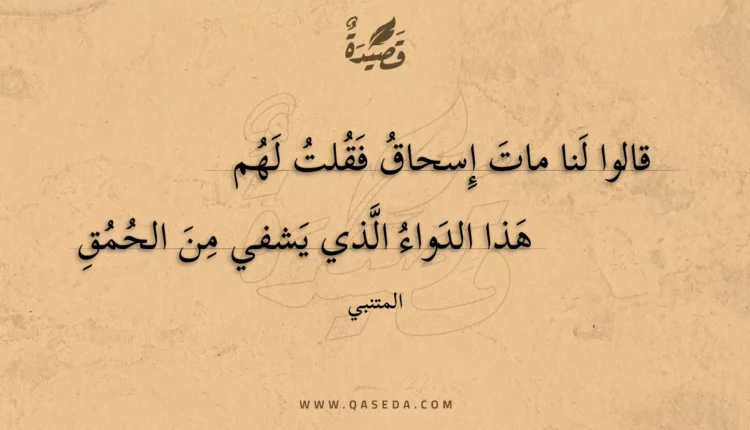 قَصِيْدَةٌ
قالوا لَنا ماتَ إِسحاقُ فَقُلتُ لَهُم
هَذا الدَواءُ الَّذي يَشفي مِنَ الحُمُقِ
المتنبي
WWW.QASEDA.COM